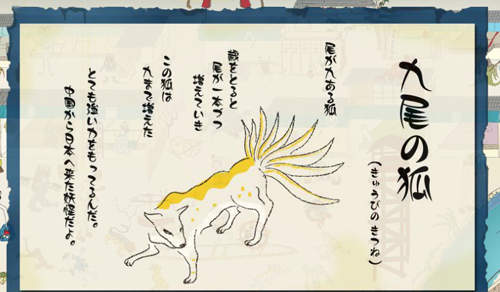 九尾の狐
(きゅうびの きつね)
尾が九ある狐
歳をとると
尾が一本づつ
増えていき
この狐は
九まで増えた
とても強い力をもってるんだ。
中国から日本へ来た妖怪だよ。